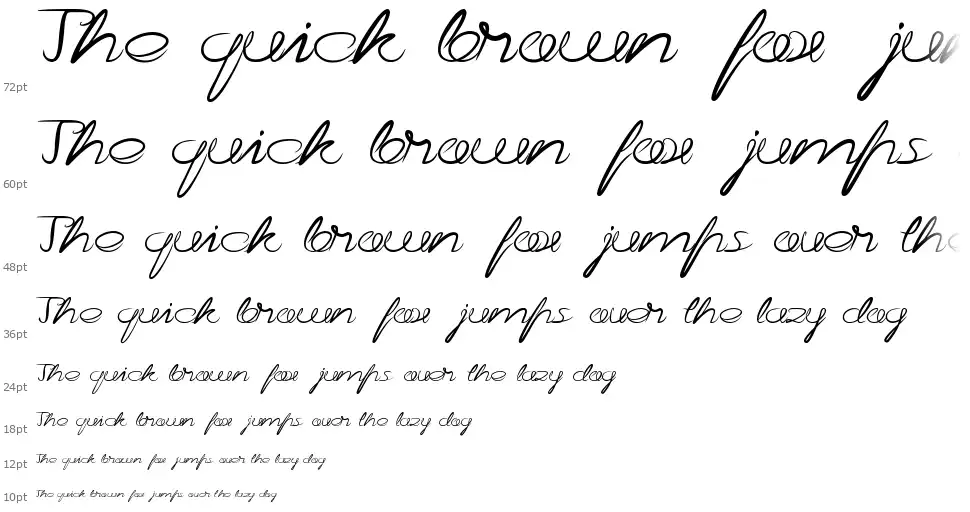 The quick brown fox jum
72pt
The quick brown fox jumps
60pt
The quick brown fox jumps over the
48pt
The quick brown fox jumps over the lazy dog
36pt
The quick brown fox jumps over the lazy dog
24pt
The quick brown fox jumps over the lazy dog
18pt
The quick brown fox jumps over the lazy dog
12pt
The quick brown fox jumps over the lazy dog
10pt